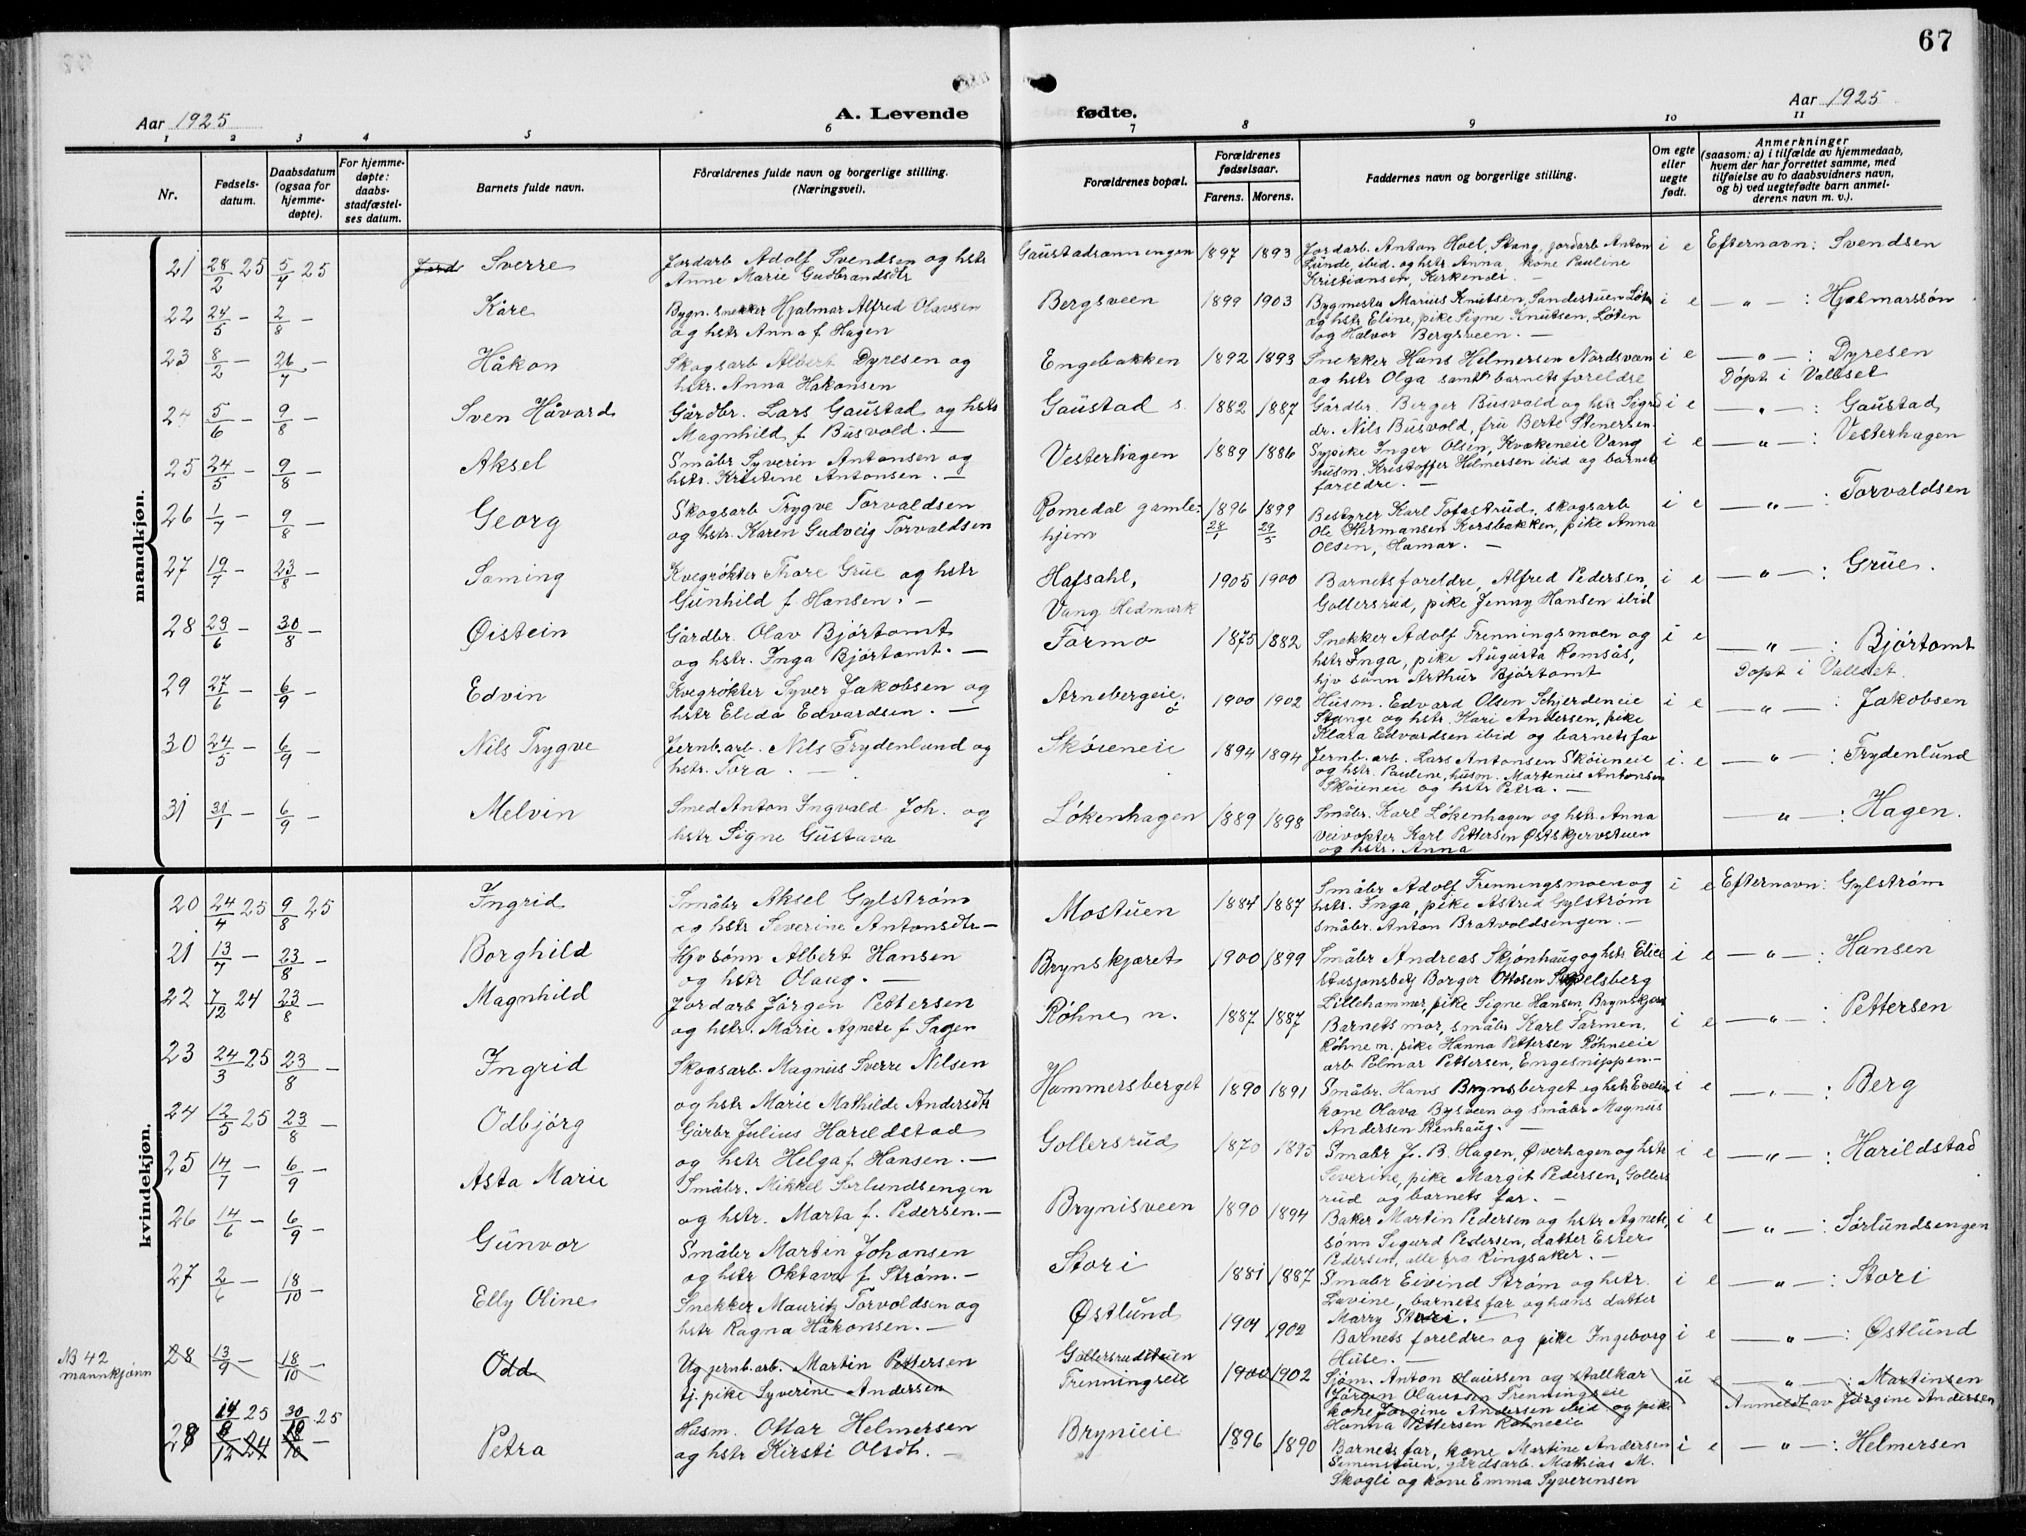 67
Aar 1925
A. Levende fødte.
Aar 1925
1 2 3 4 5 6 7 8 9 10 11
Nr.
Fødsels-
datum.
Daabsdatum
(ogsaa for
hjemme-
døpte).
For hjemme-
døpte:
daabs-
stadfæstel-
ses datum.
Barnets fulde navn.
Forældrenes fulde navn og borgerlige stilling.
(Næringsvei).
Forældrenes bopæl.
Forældrenes
fødselsaar.
Farens. Morens.
Faddernes navn og borgerlige stilling.
Om egte
eller
uegte
født.
Anmerkninger
(saasom: a) i tilfælde av hjemmedaab,
hvem der har forrettet samme, med
tilføielse av to daabsvidners navn,
og b) ved uegtefødte barn anmel-
derens navn m. v.).
mandkjøn.
21 28/2 25 5/4 25 Sverre Jordarb Adolf Svendsen og hstr Gaustadsanningen 1897 1893 Jordarb. Anton Hoel, Stang, jordarb Anton i e Efternavn: Svendsen
Anne Marie Gudbrandsdtr
Lunde, ibid. og hstr Anna, kone Pauline
Kristiansen, Kirkenær. —
22 24/5 — 2/8 — Kåre Bygn. snekker Hjalmar Alfred Olavsen Bergsveen 1899 1903 Bygmestr Marius Knutsen, Sandestuen Løten i e — " — : Hjalmarssøn
og hstr Anna f. Hagen
og hstr Eline, pike Signe Knutsen, Løten
og Halvor Bergsveen. —
23 8/2 — 26/7 — Håkon Skogsarb Albert Dyresen og Engebakken 1892 1893 Snekker Hans Helmersen Nordsveen i e — " — : Dyresen
hstr. Anna Hakonsen
og hstr Olga samt barnets foreldre
Døpt i Vallset
24 5/6 — 9/8 — Sven Håvard Gårdbr. Lars Gaustad og hstr Gaustad s. 1882 1887 Gårdbr. Berger Busvold og hstr Sigrid i e — " — : Gaustad
Magnhild f. Busvold. —
dr. Nils Busvold, fru Berte Stenersen
25 24/5 — 9/8 — Aksel Småbr Syverin Antonsen og Vesterhagen 1889 1886 Sypike Inger Olsen, Kvakeneie Vang i e — " — : Vesterhagen
hstr. Kristine Antonsen. —
husm. Kristoffer Helmersen ibid og barnets
foreldre. —
26 1/7 — 9/8 — Georg Skogsarb Trygve Torvaldsen Romedal gamle- 1896 1899 Bestyrer Karl Tofastrud, skogsarb i e — " — : Torvaldsen
og hstr. Karen Gudveig Torvaldsen hjem 28/1 29/5 Ole Hermansen Korsbakken, pike Anna
Olsen, Hamar. —
27 19/7 — 23/8 — Saming Kvegrøkter Thore Grue og hstr Hafsahl, 1905 1900 Barnets foreldre, Alfred Pedersen, i e — " — : Grue.
Gunhild f. Hansen. — Vang Hedmark Gollersrud, pike Jenny Hansen ibid
28 23/6 — 30/8 — Øistein Gårdbr. Olav Bjørtomt Formo 1875 1882 Snekker Adolf Frenningsmoen og i e — " — : Bjørtomt
og hstr. Inga Bjørtomt. —
hstr Inga, pike Augusta Romsås,
hjv sønn Arthur Bjørtomt
Døpt i Vallset.
29 27/6 — 6/9 — Edvin Kvegrøkter Syver Jakobsen og Arnebergeie, ø 1900 1902 Husm. Edvard Olsen Schjerdeneie i e — " — : Jakobsen
hstr Elida Edvardsen. —
Stange og hstr. Kari Andersen, pike
Klara Edvardsen ibid og barnets far
30 24/5 — 6/9 — Nils Trygve Jernb.arb. Nils Frydenlund og Skøieneie 1894 1894 Jernb. arb. Lars Antonsen Skøieneie i e — " — : Frydenlund
hstr. Tora. —
og hstr. Pauline, husm. Martenius Antonsen
Skøieneie og hstr Petra. —
31 31/1 — 6/9 — Melvin Smed Anton Ingvald Joh. og Løkenhagen 1889 1898 Småbr. Karl Løkenhagen og hstr. Anna — " — : Hagen.
hstr Signe Gustava
veivokter Karl Pettersen Østskjervstuen
og hstr. Anna
kvindekjøn.
20 24/4 25 9/8 25 Ingrid Småbr Aksel Gylstrøm Mostuen 1884 1887 Småbr Adolf Frenningsmoen og i e Efternavn: Gylstrøm
og hstr Severine Antonsdtr —
hstr. Inga, pike Astrid Gylstrøm
småbr. Anton Bratvoldsengen. —
21 13/7 — 23/8 — Borghild Hjv sønn Albert Hansen Brynskjæret 1900 1899 Småbr Andreas Skjønhaug og hstr. i e — " — : Hansen
og hstr Olaug. —
stasjonsbetj Borger Ottosen
Lillehammer, pike Signe Hansen, Brynskjæret
22 7/12 24 23/8 — Magnhild Jordarb Jørgen Pettersen Røhne n. 1887 1887 Barnets mor, småbr Karl Farmen, i e — " — : Pettersen
og hstr. Marie Agnete f. Sagen
Røhne n. pike Hanna Pettersen Røhneeie
arb Polmar Pettersen, Engesnippen. —
23 24/3 25 23/8 — Ingrid Skogsarb. Magnus Sverre Nilsen Hammersberget 1890 1891 Småbr. Hans Brynsberget og hstr i e — " — : Berg
og hstr Marie Mathilde Andersdtr
kone Olava Bysveen og småbr Magnus
Andersen Stenhaug. —
24 12/5 25 23/8 — Odbjørg Gårbr Julius Harildstad Gollersrud 1870 1895 Småbr J. B. Hagen, Øverhagen og hstr i e — " — : Harildstad
og hstr Helga f. Hansen. —
Severine, pike Margit Pedersen, Gollers
rud og barnets far. —
25 14/7 — 6/9 — Asta Marie Småbr. Mikkel Sørlundsengen Brynisveen 1890 1894 Baker Martin Pedersen og hstr Agnete, i e — " — : Sørlundsengen
og hstr. Marta f. Pedersen. —
sønn Sigurd Pedersen, datter Ester
Pedersen, alle fra Ringsaker. —
26 14/6 — 6/9 — Gunvor Småbr Martin Johansen Stori 1881 1887 Småbr Eivind Strøm og hstr. i e — " — : Stori
og hstr Oktava f. Strøm. —
Lavine, barnets far og hans datter
Marry Stori. —
27 2/6 — 18/10 — Elly Oline Snekker Mauritz Torvoldsen og Østlund 1904 1902 Barnets foreldre og pike Ingeborg i e — " — : Østlund
hstr Ragna Håkonsen. —
Huse. —
NB 42
mannkjønn
28 13/9 — 18/10 — Odd Ug jernb.arb. Martin Pettersen Gollersrudstuen 1900 1902 Sjøm. Anton Olaussen og stallkar u e — " — : Martinsen
tj. pike Syverine Andersen Frenningseie Jørgen Olaussen Frenningseie
kone Jørgine Andersen ibid og pike
Hanna Pettersen Røhneeie
Anmeldt av Jørgine Andersen
28 14/8 25 30/10 25 Petra Husm. Ottar Helmersen Brynieie 1896 1890 Barnets far, kone Martine Andersen i e — " — : Helmersen
og hstr Kirsti Olsdt.
Simenstuen, gårdsarb. Mathias M.
Skogli og kone Emma Syverinsen